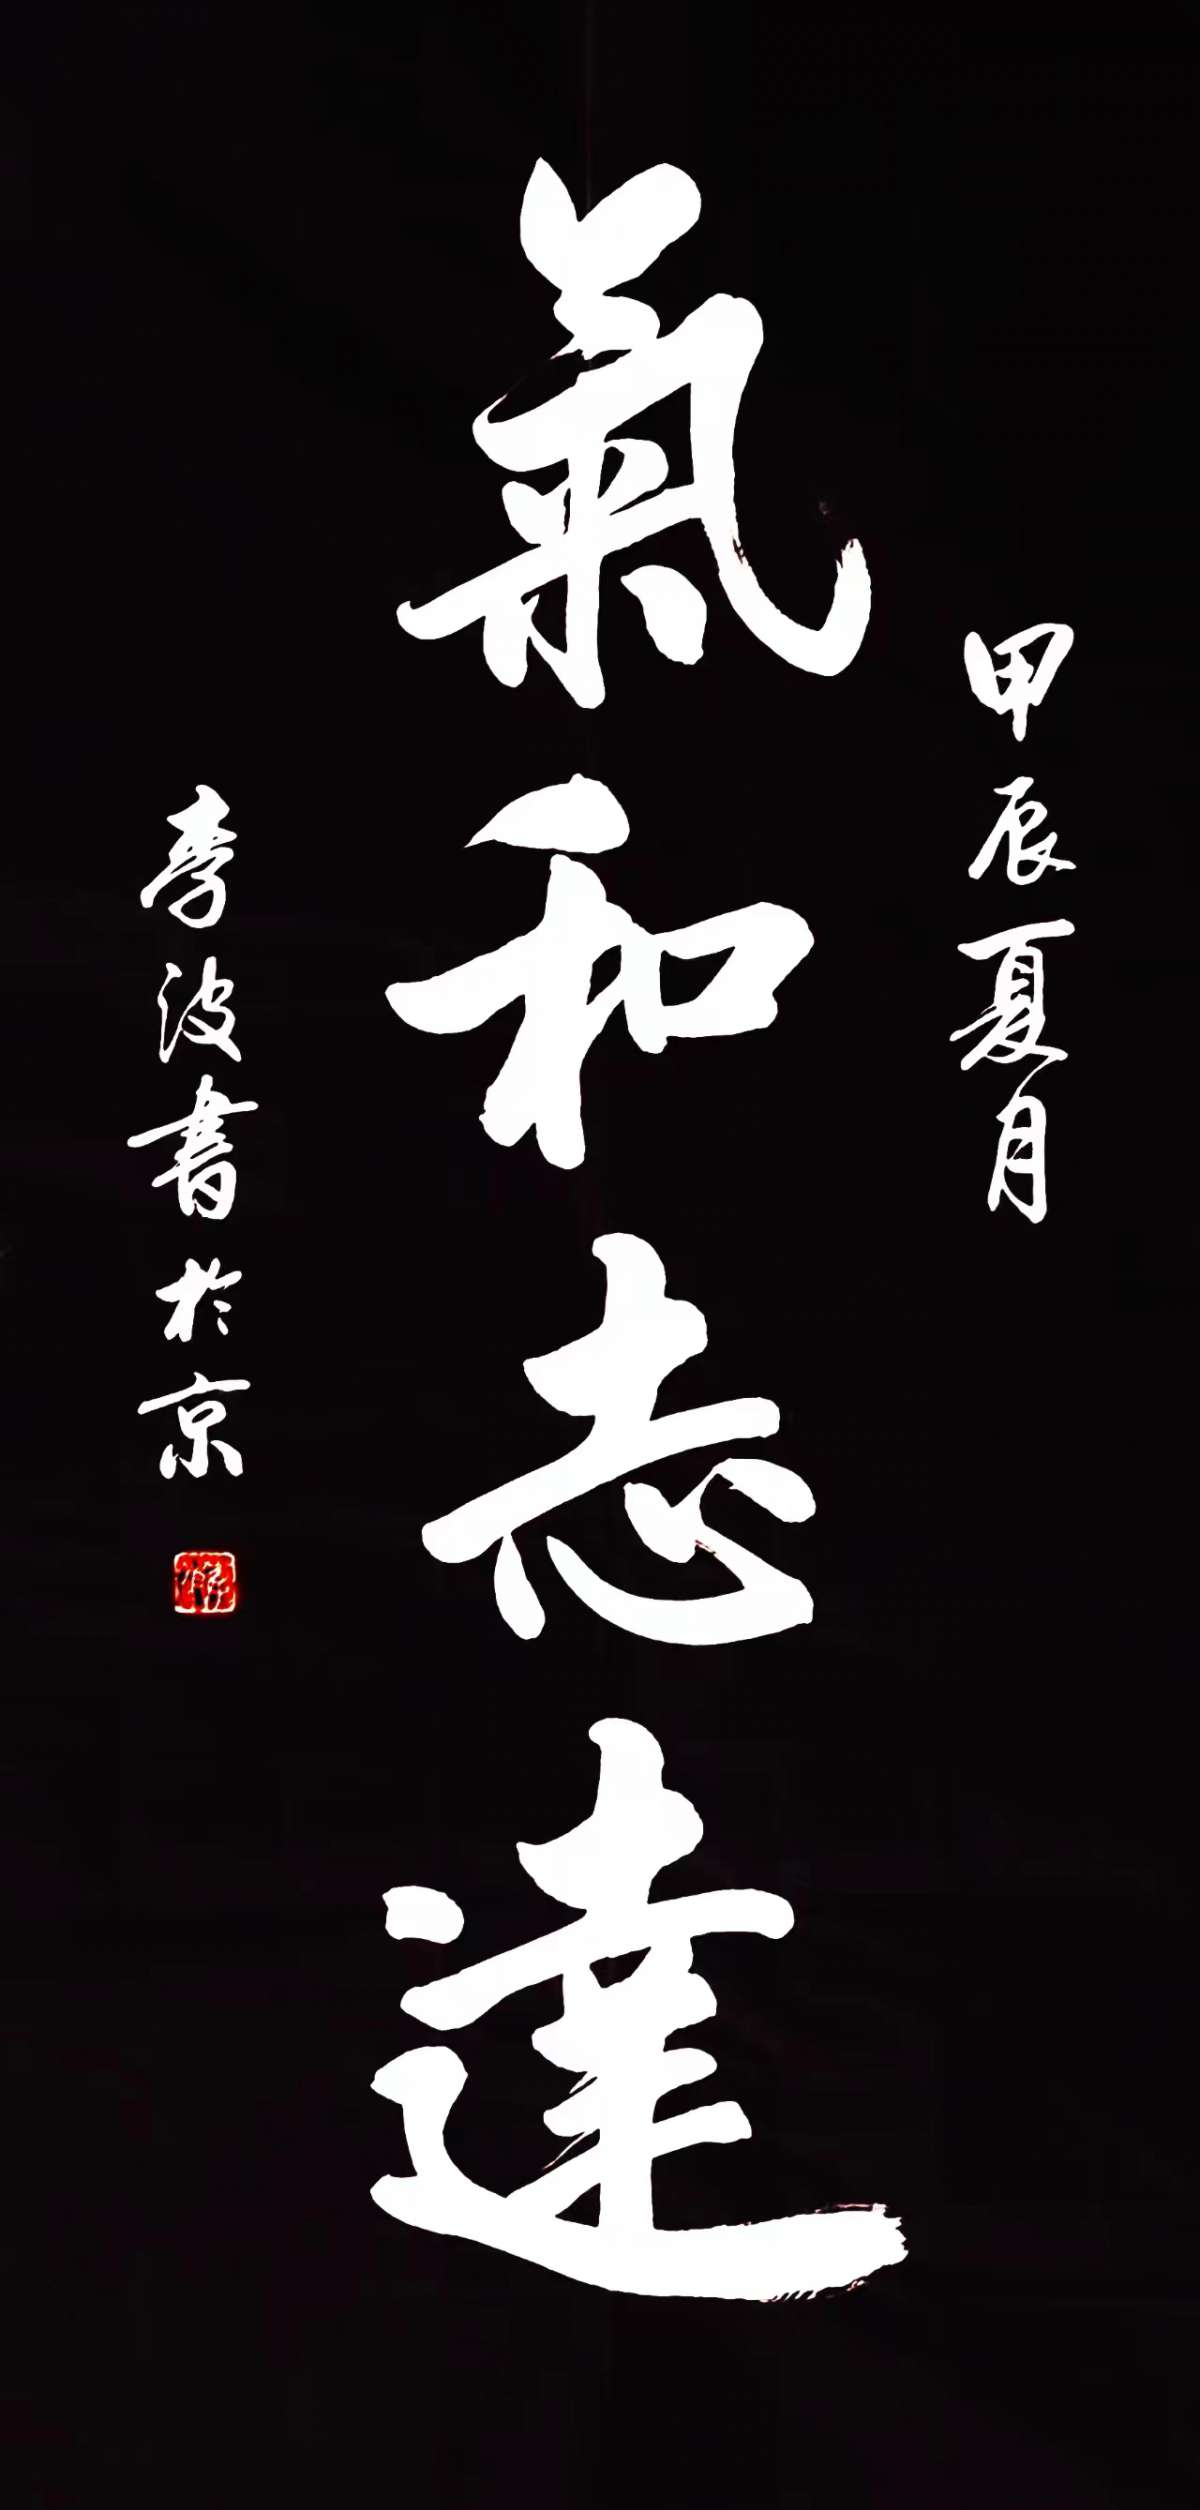 甲辰夏月
氣和志達
李波書於京